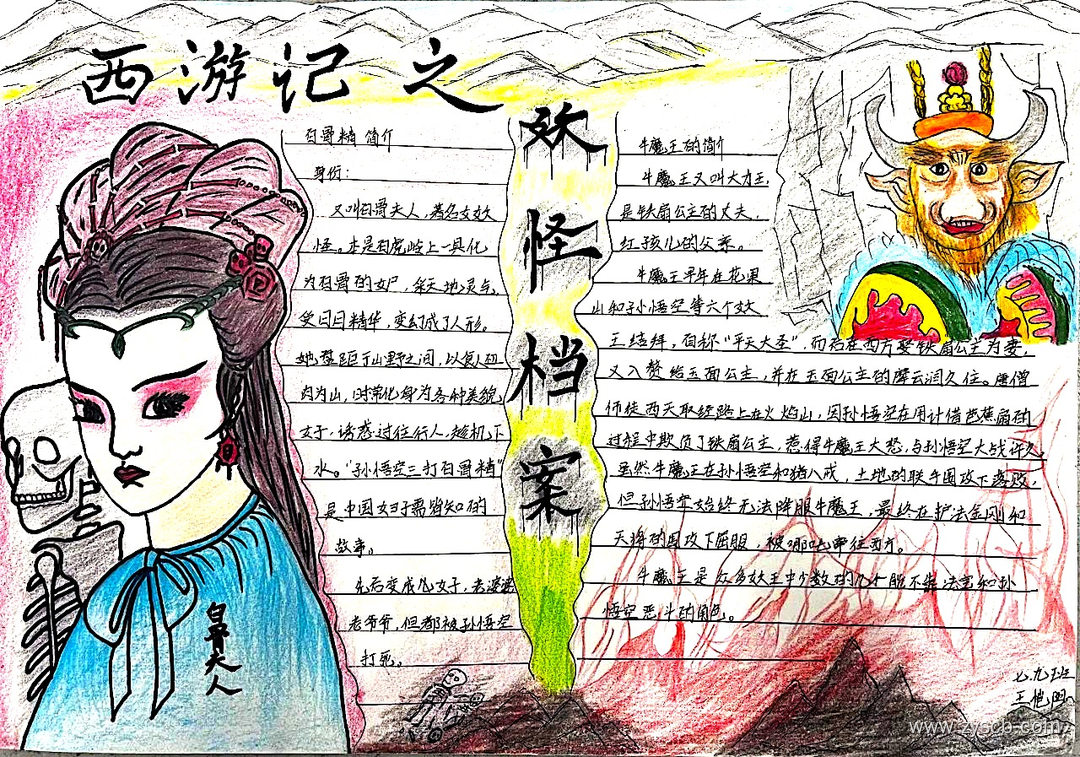 西游记之
妖怪档案
白骨精 简介
身份：
又叫白骨夫人，著名女妖
怪。本是白虎岭上一具化
为白骨的女尸，采天地灵气，
受日月精华，变幻成了人形。
她落距于山野之间，以食人血
肉为山，时常化身为各种美貌
女子，诱惑过往行人，趁机下
水。"孙悟空三打白骨精"
是中国妇孺皆知的
故事。
先后变成化女子，老婆婆
老爷爷，但都被孙悟空
打死。
白骨夫人
牛魔王的简介
牛魔王又叫大力王，
是铁扇公主的丈夫，
红孩儿的父亲。
牛魔王早年在花果
山和孙悟空等六个妖
王结拜，自称"平天大圣"，而后在西方娶铁扇公主为妻，
又入赘给玉面公主，并在玉面公主的摩云洞久住。唐僧
师徒西天取经路上在火焰山，因孙悟空在用计借芭蕉扇的
过程中欺负了铁扇公主，惹得牛魔王大怒，与孙悟空大战许久，
虽然牛魔王在孙悟空和猪八戒，土地的联手围攻下落败，
但孙悟空始终无法降服牛魔王，最终在护法金刚和
天将的围攻下屈服，被哪吒牵往西方。
牛魔王是众多妖王中少数的几个能不靠法宝和孙
悟空恶斗的角色。
七.九班
www.zyscb.com